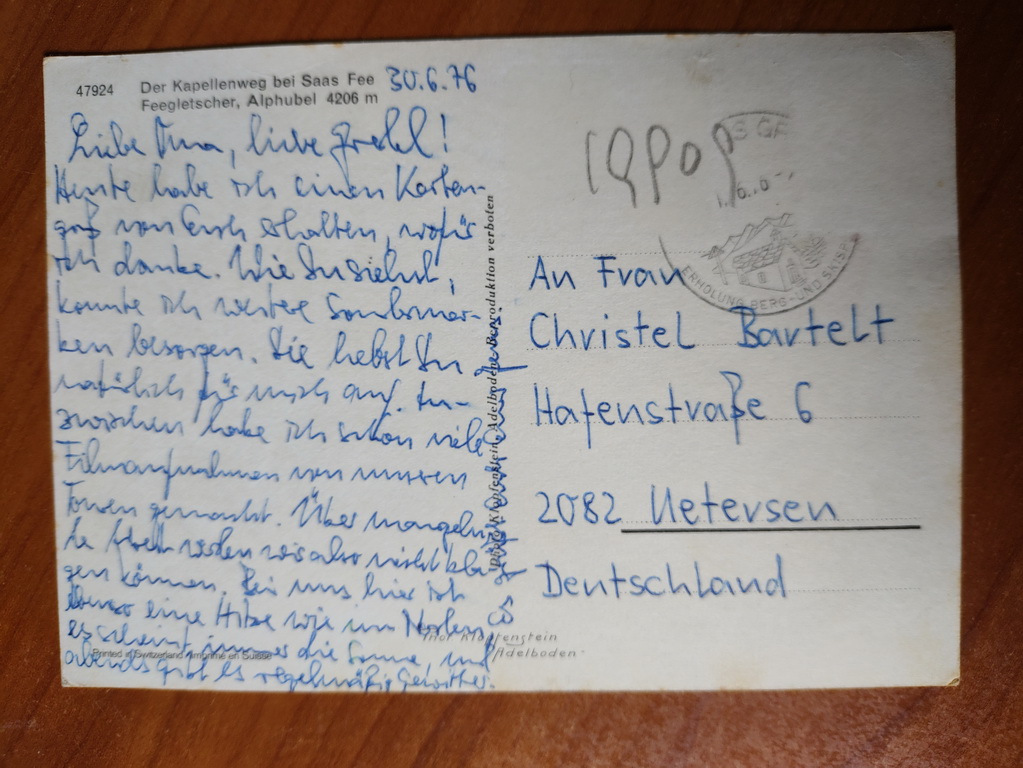 47924 Der Kapellenweg bei Saas Fee 30.6.76
Feegletscher, Alphubel 4206 m
Liebe Oma, liebe
Heute habe ich einen Karten-
gruß von Euch erhalten, wofür
ich danke. Wie Du siehst,
konnte ich weitere Sondermar-
ken besorgen. Die hebst Du
natürlich für mich auf. In-
zwischen habe ich schon viele
Filmaufnahmen von unseren
Touren gemacht. Über mangeln-
de Arbeit werden wir also nicht kla-
gen können. Bei uns hier ist
ebenso eine Hitze wie im Norden,
es scheint immer die Sonne, und
abends gibt es regelmäßig Gewitter.
Printed in Switzerland Imprimé en Suisse
Photo Klopfenstein, Adelboden Reproduktion verboten
An Frau
Christel Bartelt
Hafenstraße 6
2082 Uetersen
Deutschland
Klopfenstein
Adelboden
ERHOLUNG BERG- UND SKISP